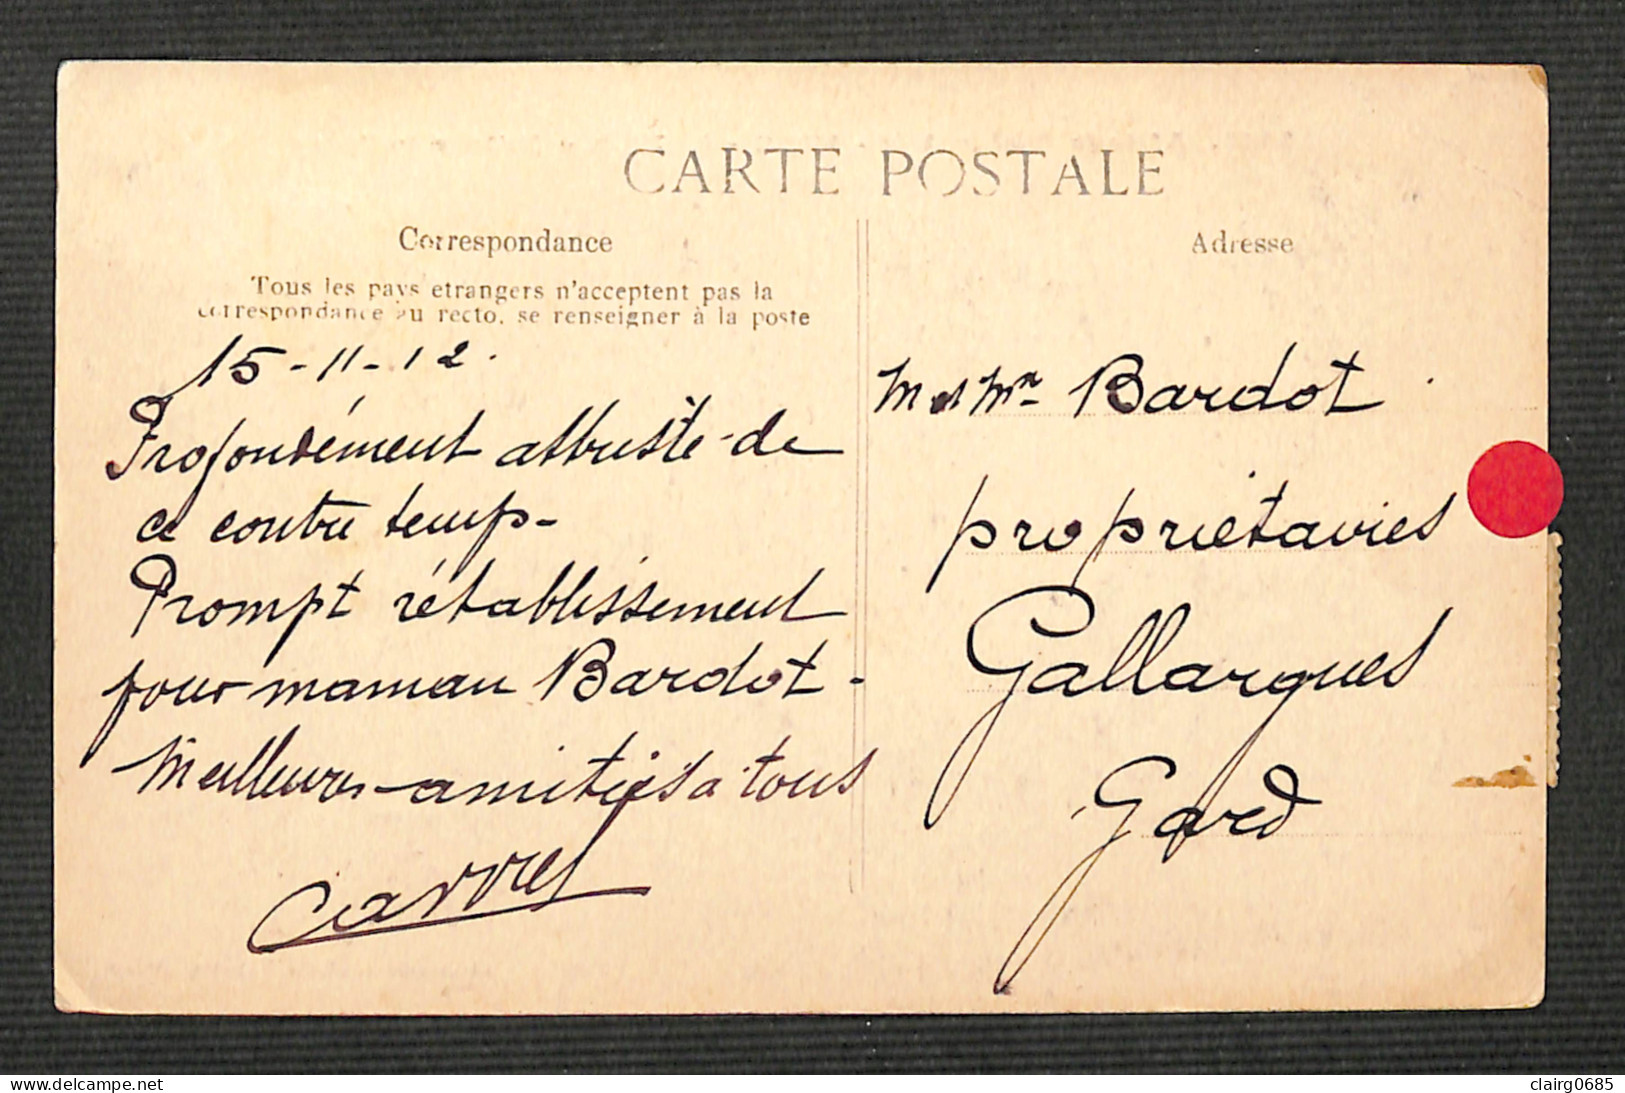 CARTE POSTALE
Correspondance
Tous les pays etrangers n'acceptent pas la
correspondance au recto, se renseigner à la poste
15-11-12.
Profondément attristé de
ce contre temps-
Prompt rétablissement
pour maman Bardot-
Meilleures amitiés a tous
Carrel
Adresse
M et Mme Bardot
propriétaires
Gallargues
Gard
delcampe.net
clairg0685